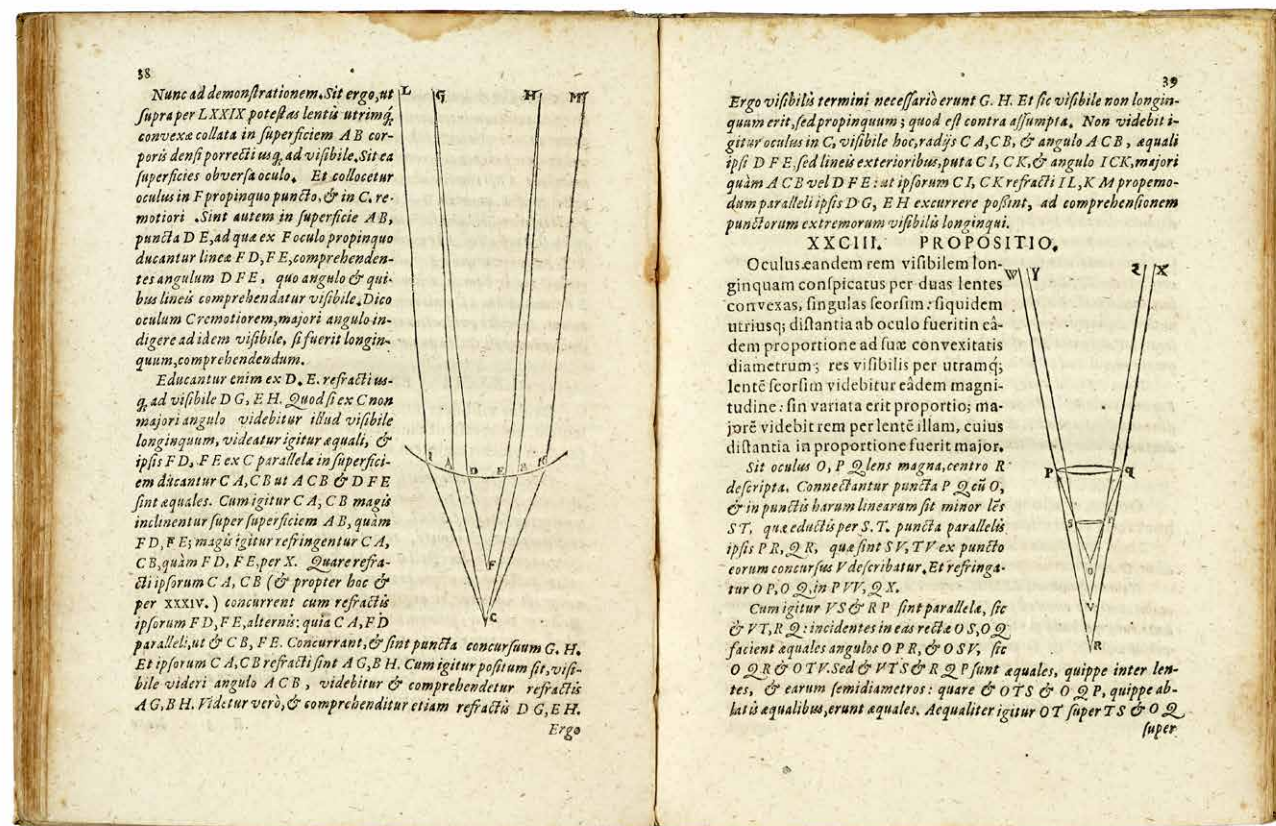 38
Nunc ad demonſtrationem. Sit ergo, ut
ſupra per LXXIX poteſtas lentis utrimq́;
convexæ collata in ſuperficiem AB cor-
poris denſi porrecti usq; ad viſibile. Sit ea
ſuperficies obverſa oculo. Et collocetur
oculus in F propinquo puncto, & in C. re-
motiori. Sint autem in ſuperficie AB,
puncta D E, ad quæ ex F oculo propinquo
ducantur lineæ FD, FE, comprehenden-
tes angulum DFE, quo angulo & qui-
bus lineis comprehendatur viſibile. Dico
oculum C remotiorem, majori angulo in-
digere ad idem viſibile, ſi fuerit longin-
quum, comprehendendum.
Educantur enim ex D. E. refracti us-
q; ad viſibile DG, EH. Quod ſi ex C non
majori angulo videbitur illud viſibile
longinquum, videatur igitur æquali, &
ipſis FD, FE ex C parallelæ in ſuperfici-
em ducantur CA, CB ut ACB & DFE
ſint æquales. Cum igitur CA, CB magis
inclinentur ſuper ſuperficiem AB, quàm
FD, FE; magis igitur refringentur CA,
CB, quàm FD, FE, per X. Quare refra-
cti ipſorum CA, CB (& propter hoc &
per XXXIV.) concurrent cum refractis
ipſorum FD, FE, alternis: quia CA, FD
paralleli, ut & CB, FE. Concurrant, & ſint puncta concurſuum G. H.
Et ipſorum CA, CB refracti ſint AG, BH. Cum igitur poſitum ſit, viſi-
bile videri angulo ACB, videbitur & comprehendetur refractis
AG, BH. Videtur verò, & comprehenditur etiam refractis DG, EH.
Ergo
L G H M
I A D E B K
F
C
39
Ergo viſibilis termini neceſſariò erunt G. H. Et ſic viſibile non longin-
quum erit, ſed propinquum; quod eſt contra aſſumpta. Non videbit i-
gitur oculus in C, viſibile hoc, radijs CA, CB, & angulo ACB, æquali
ipſi DFE, ſed lineis exterioribus, puta CI, CK, & angulo ICK, majori
quàm ACB vel DFE: ut ipſorum CI, CK refracti IL, KM propemo-
dum paralleli ipſis DG, EH excurrere poßint, ad comprehenſionem
punctorum extremorum viſibilis longinqui.
XXCIII. PROPOSITIO.
Oculus eandem rem viſibilem lon-
ginquam conſpicatus per duas lentes
convexas, ſingulas ſeorſim: ſiquidem
utriusq; diſtantia ab oculo fuerit in eâ-
dem proportione ad ſuæ convexitatis
diametrum; res viſibilis per utramq́;
lentẽ ſeorſim videbitur eâdem magni-
tudine: ſin variata erit proportio; ma-
jorẽ videbit rem per lentẽ illam, cuius
diſtantia in proportione fuerit major.
Sit oculus O, P Q lens magna, centro R
deſcripta. Connectantur puncta P Q cũ O,
& in punctis harum linearum ſit minor lẽs
ST, quæ eductis per S. T. puncta parallelis
ipſis PR, QR, quæ ſint SV, TV ex puncto
eorum concurſus V deſcribatur. Et refringã-
tur OP, OQ, in PVV, QX.
Cum igitur VS & RP ſint parallelæ, ſic
& VT, RQ: incidentes in eas rectæ OS, OQ
facient æquales angulos OPR, & OSV, ſic
OQR & OTV. Sed & VTS & RQP ſunt æquales, quippe inter len-
tes, & earum ſemidiametros: quare & OTS & OQP, quippe ab-
latis æqualibus, erunt æquales. Aequaliter igitur OT ſuper TS & OQ
ſuper
W Y Z X
P q
S T
O
V
R